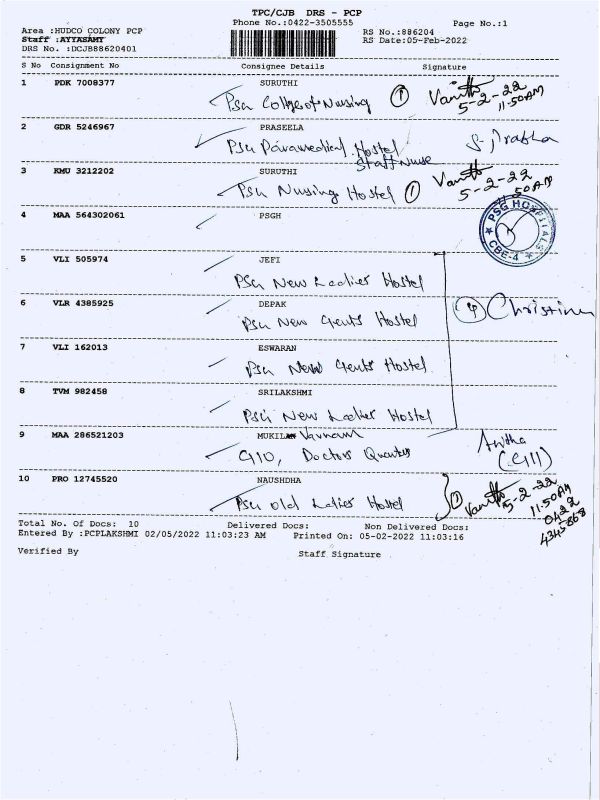 TPC/CJB DRS - PCP
Phone No.:0422-3505555 Page No.:1
Area :HUDCO COLONY PCP RS No.:886204
Staff :AYYASAMY RS Date:05-Feb-2022
DRS No. :DCJB88620401
S No Consignment No Consignee Details Signature
1 PDK 7008377 SURUTHI
PSG College of Nursing 1 Vanitha 5-2-22 11.50AM
2 GDR 5246967 PRASEELA
PSG Paramedical Hostel
Staff Nurse
3 KMU 3212202 SURUTHI
PSG Nursing Hostel 1 Vanitha 5-2-22 50 AM
4 MAA 564302061 PSGH
PSG HOSPITALS CBE-4
5 VLI 505974 JEFI
PSG New Ladies Hostel
6 VLR 4385925 DEPAK
PSG New Gents Hostel 4 Christina
7 VLI 162013 ESWARAN
PSG New Gents Hostel.
8 TVM 982458 SRILAKSHMI
PSG New Ladies Hostel
9 MAA 286521203 MUKILAN
G10, Doctors Quarters Anitha (G11)
10 PRO 12745520 NAUSHDHA
PSG old Ladies Hostel 1 Vanitha 5-2-22
11.50AM
0422
4345868
Total No. Of Docs: 10 Delivered Docs: Non Delivered Docs:
Entered By :PCPLAKSHMI 02/05/2022 11:03:23 AM Printed On: 05-02-2022 11:03:16
Verified By Staff Signature